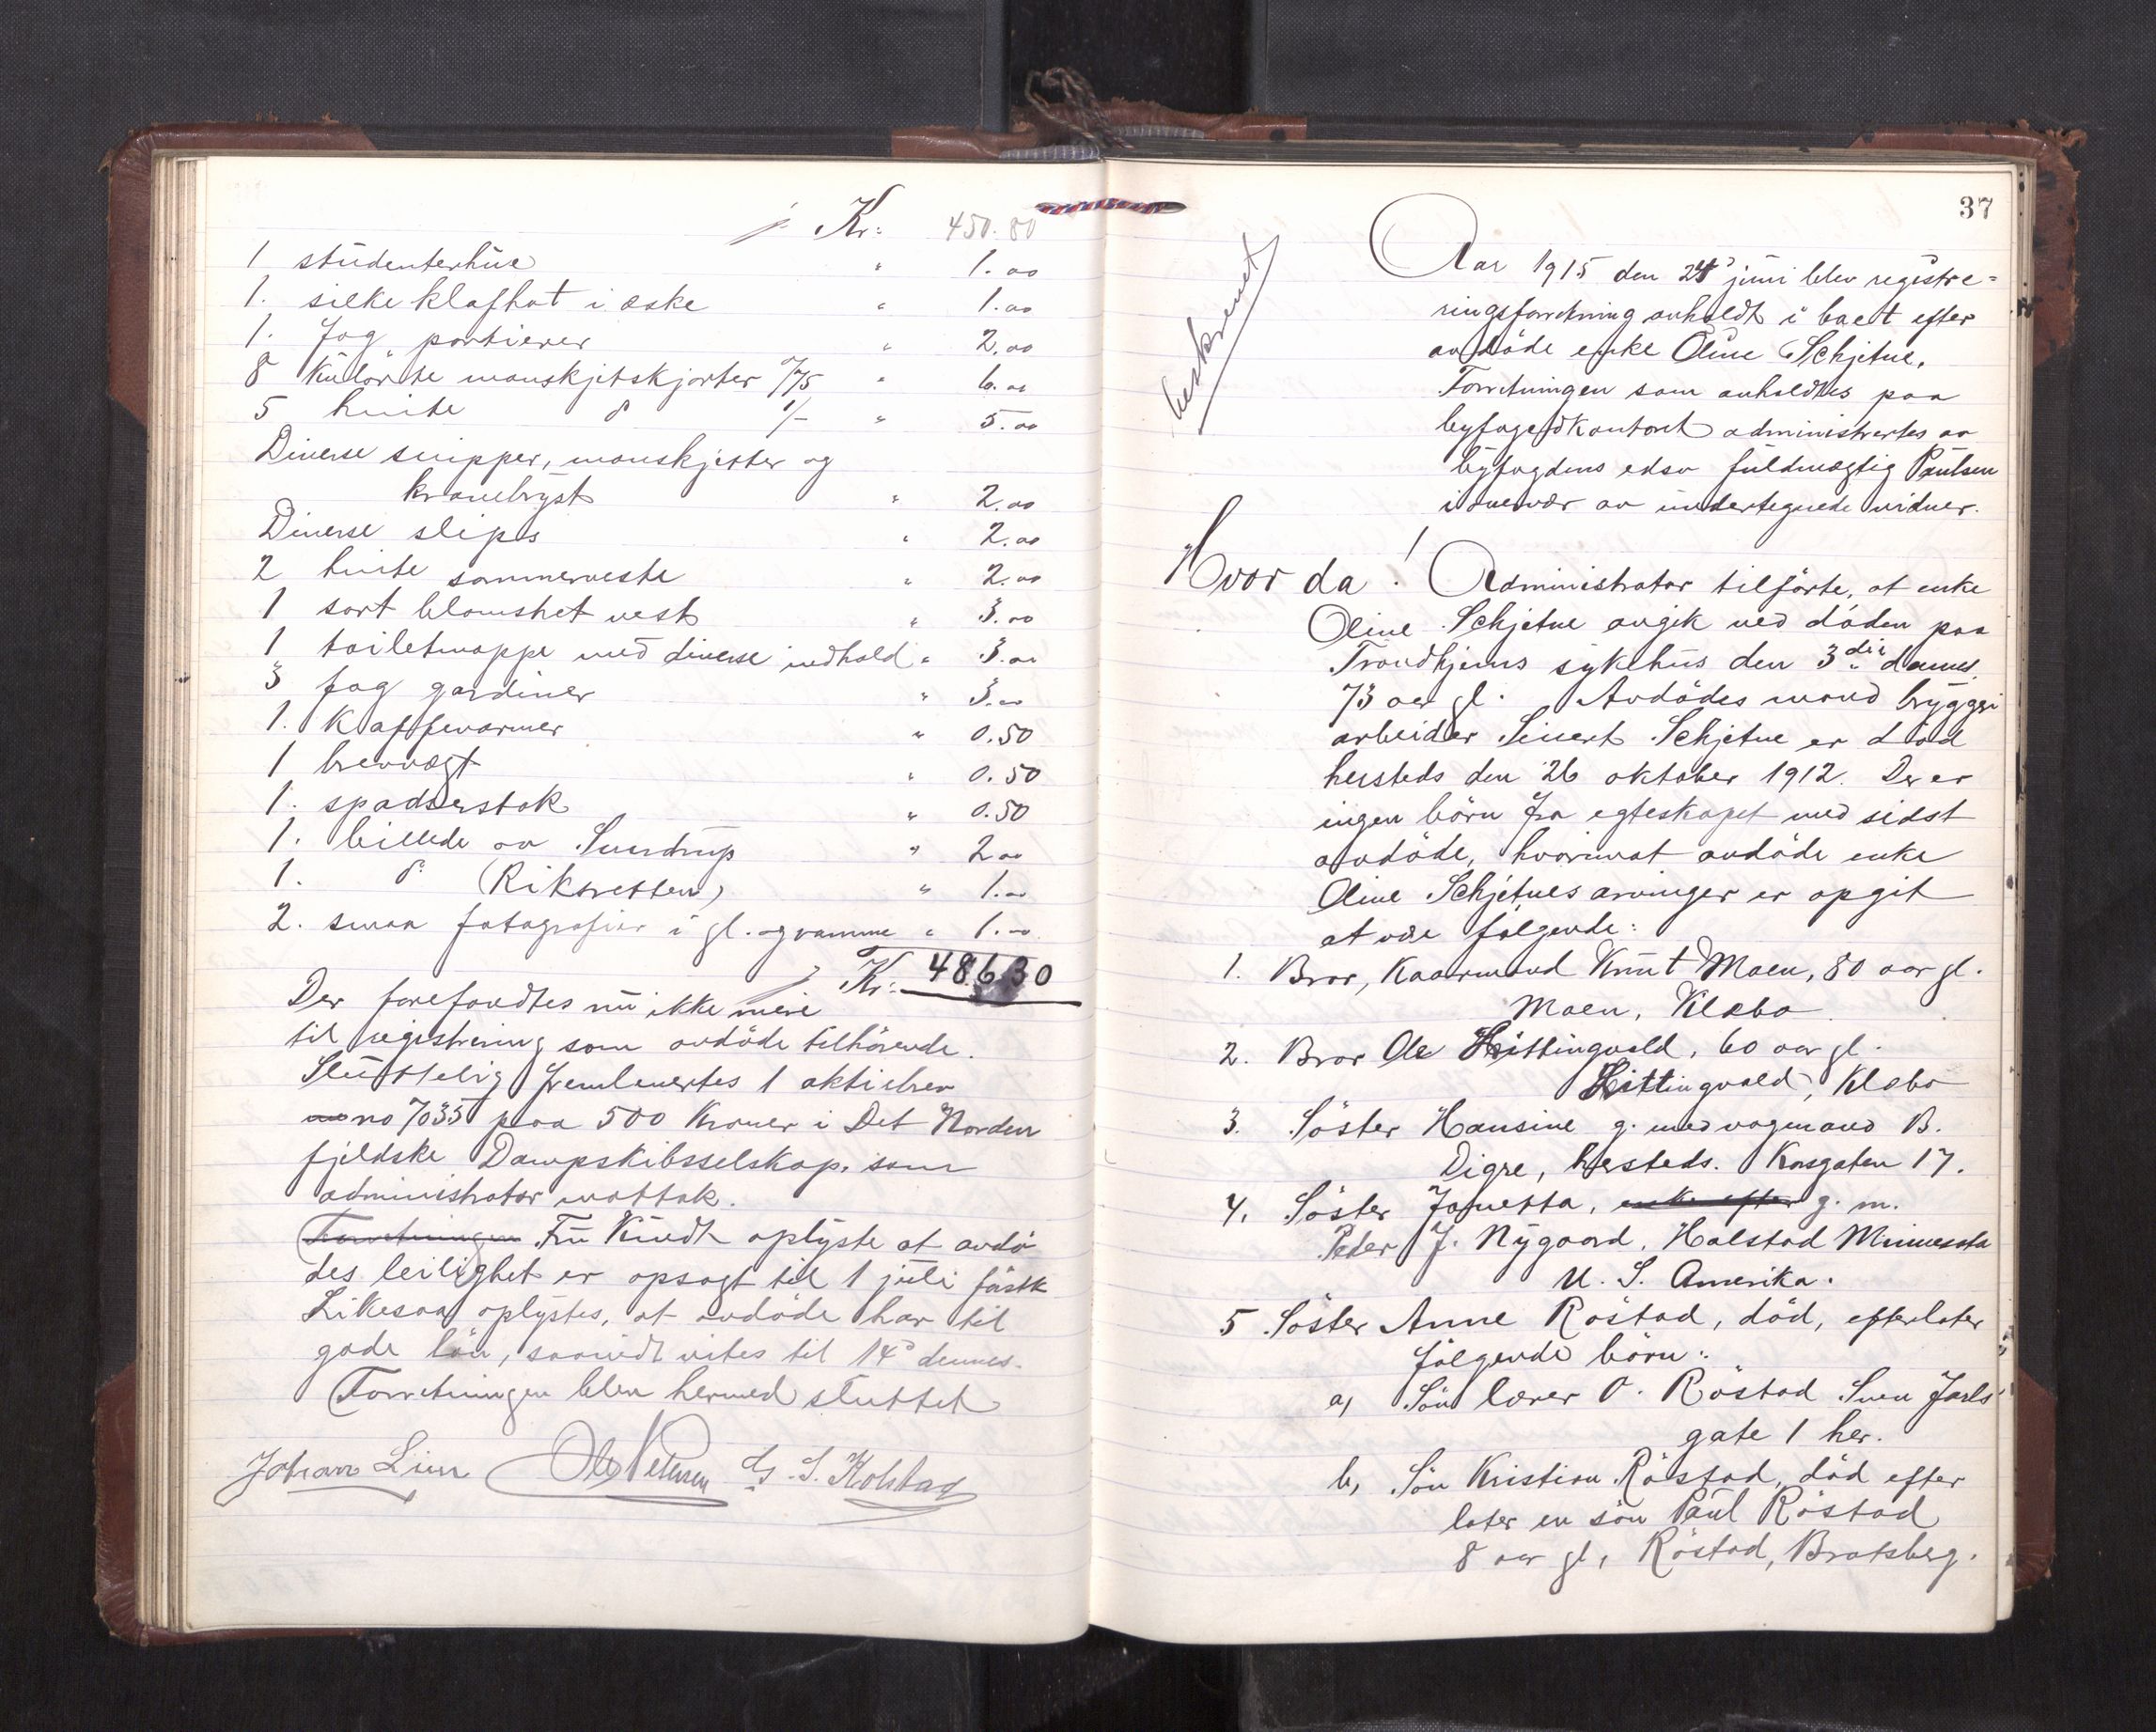 / Kr: 450.80
1 studenterhue " 1.00
1. silke klafhat i æske " 1.00
1. fag portierer " 2.00
8 kulörte manskjetskjorter 0/75 " 6.00
5 hvite do 1/- " 5.00
Diverse snipper, manskjetter og
kravebryst " 2.00
Diverse slips " 2.00
2 hvite sommerveste " 2.00
1 sort blomstret vest " 3.00
1 toiletmappe med diverse indhold " 3.00
3 fag gardiner " 3.00
1. kaffevarmer " 0.50
1 brevvægt " 0.50
1. spadserstok " 0.50
1. billede av Sverdrup " 2.00
1. do (Riksretten) " 1.00
2. smaa fotografier i gl. og ramme " 1.00
/ Kr: 486.30
Der forefandtes nu ikke mere
til registrering som avdöde tilhörende.
Sluttelig fremlevertes 1 aktiebrev
no 7035 paa 500 Kroner i Det Norden
fjeldske Dampskibsselskap, som
administrator mottok.
Forretningen Fru Kindt oplyste at avdö
des leilighet er opsagt til 1 juli förstk
Likesaa oplystes, at avdöde har til
gode lön, saavidt vites til 14' dennes.
Forretningen blev hermed sluttet
Johan Lien Ole Petersen G. S. Kolstad
37
beskrevet
Aar 1915 den 24' juni blev registre=
ringsforretning avholdt i boet efter
avdöde enke Oline Schjetne.
Forretningen som avholdtes paa
byfogedkontoret administrertes av
byfogdens edsv fuldmægtig Paulsen
i overvær av undertegnede vidner.
Hvor da! Administrator tilförte, at enke
Oline Schjetne avgik ved döden paa
Trondhjems sykehus den 3die dennes.
73 aar gl. Avdödes mand bryggeri
arbeider Sivert Schjetne er död
hersteds den 26 oktober 1912. Der er
ingen börn fra egteskapet med sidst
avdöde, hvorimot avdöde enke
Oline Schjetnes arvinger er opgit
at være fölgende:
1. Bror, Kaarmand Knut Moen, 80 aar gl.
Moen, Klæbo.
2. Bror Ole Hittingvold, 60 aar gl.
Hittingvold, Klæbo
3. Söster Hansine g. med vognmand B.
Digre, hersteds. Korsgaten 17.
4. Söster Jonetta, enke efter g. m.
Peder J. Nygaard, Halstad Minnesota
U. S. Amerika.
5 Söster Anne Röstad, död, efterlater
fölgende börn:
a, Sön lærer O. Röstad Sven Jarls
gate 1 her.
b, Sön Kristian Röstad, död efter
later en sön Paul Röstad
8 aar gl, Röstad, Bratsberg.